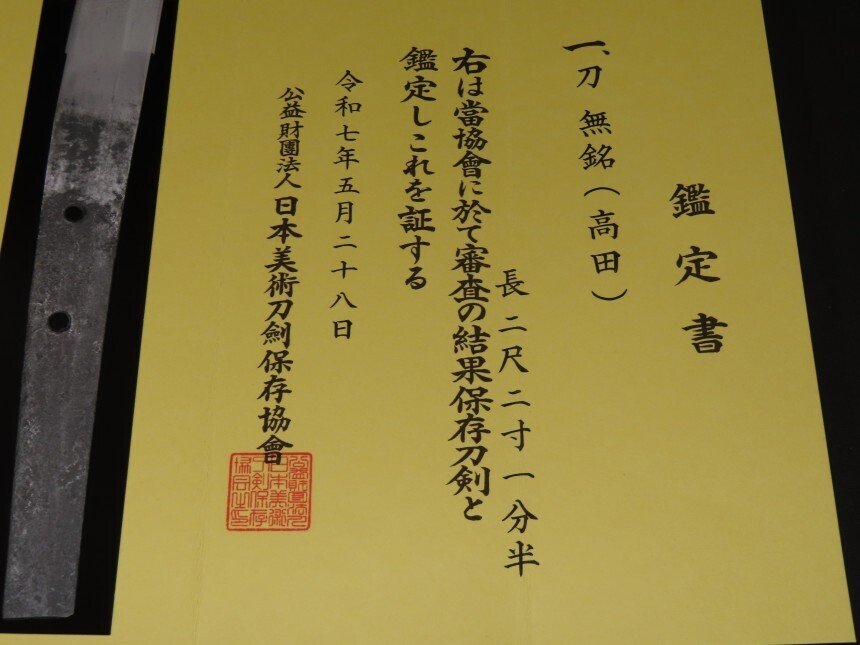 鑑定書
一、刀 無銘(高田)
長二尺二寸一分半
右は當協會に於て審査の結果保存刀剣と
鑑定しこれを証する
令和七年五月二十八日
公益財團法人日本美術刀劍保存協會